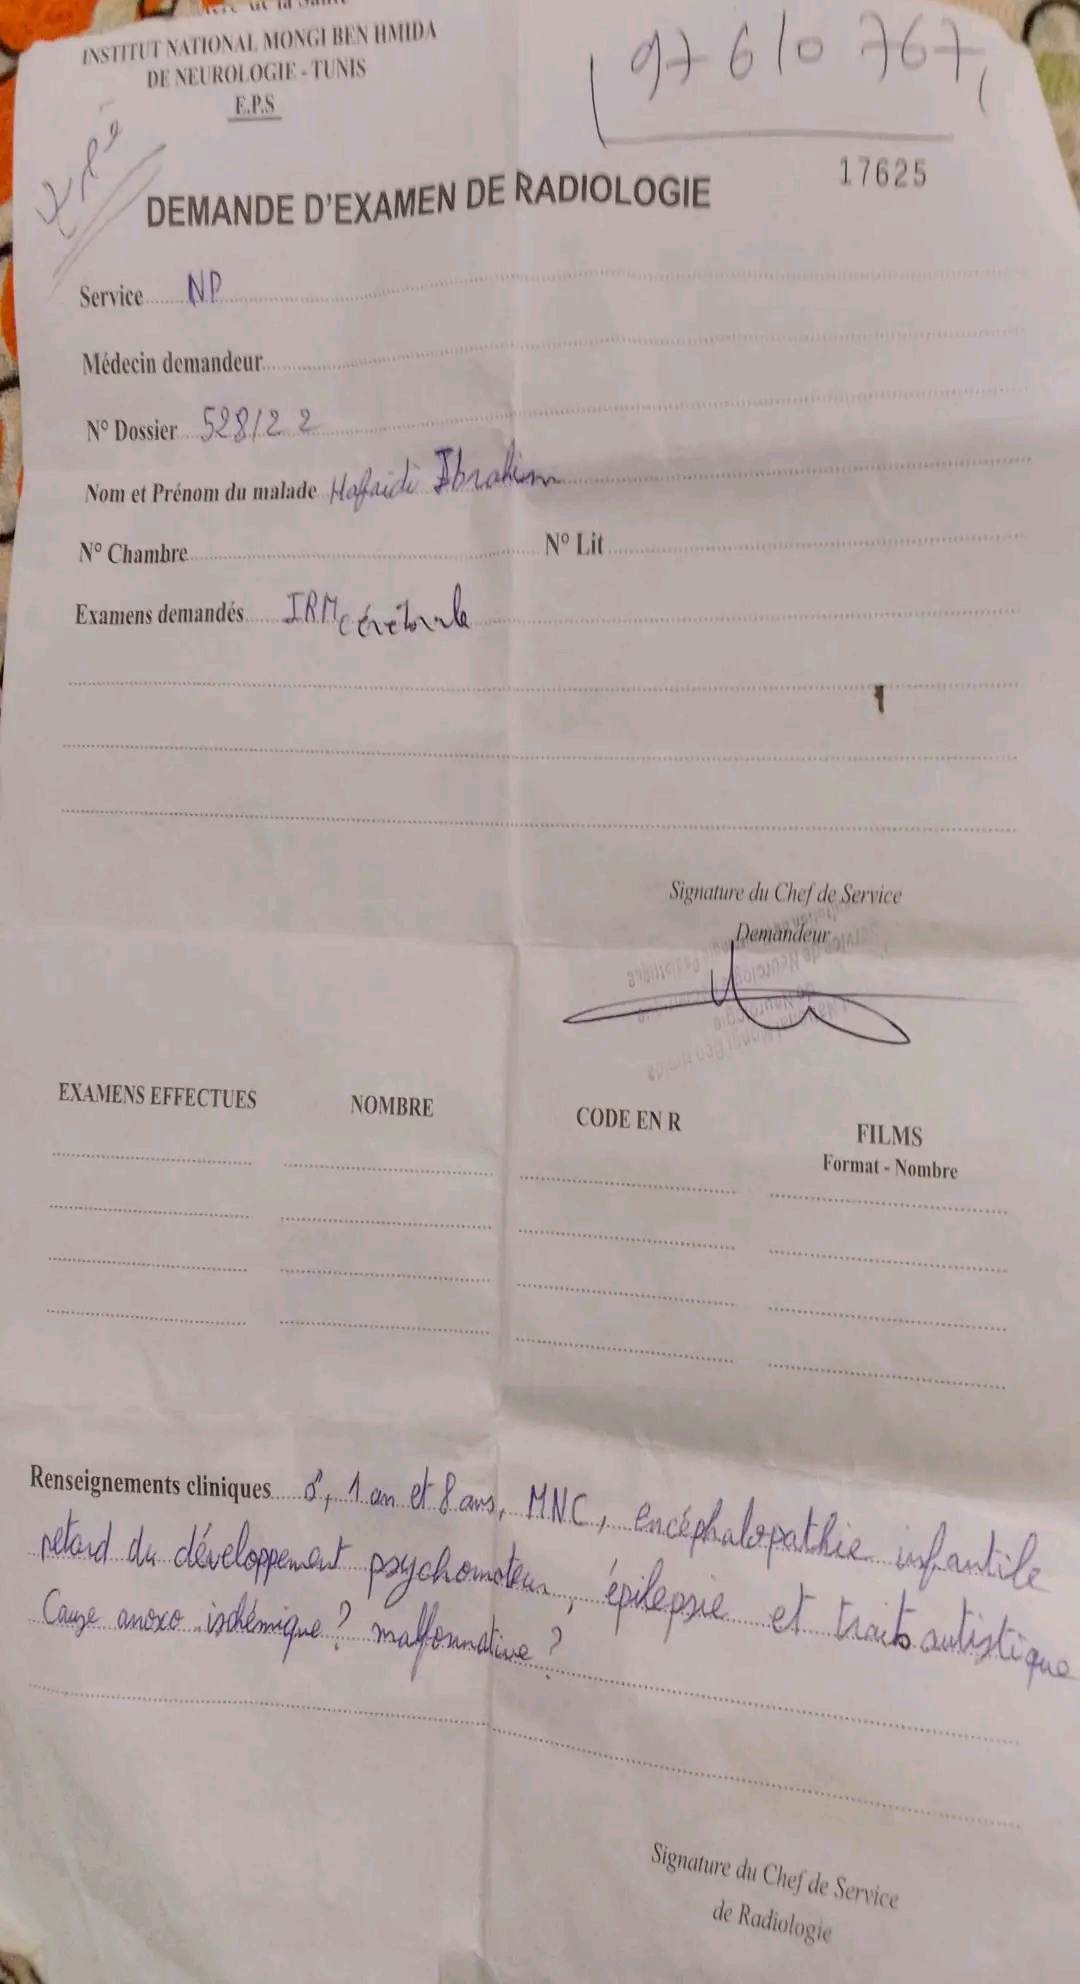 de la Santé
INSTITUT NATIONAL MONGI BEN HMIDA
DE NEUROLOGIE - TUNIS
E.P.S
97 610 767
17625
DEMANDE D'EXAMEN DE RADIOLOGIE
Service NP
Médecin demandeur
N° Dossier 528/22
Nom et Prénom du malade Hafaidi Ibrahim
N° Chambre N° Lit
Examens demandés IRM cérébrale
Signature du Chef de Service
Demandeur
EXAMENS EFFECTUES NOMBRE CODE EN R FILMS
Format - Nombre
Renseignements cliniques ♂, 1 an et 8 ans, MNC, encéphalopathie infantile
retard du développement psychomoteur, épilepsie et traits autistique
Cause anoxo ischémique? malformative?
Signature du Chef de Service
de Radiologie